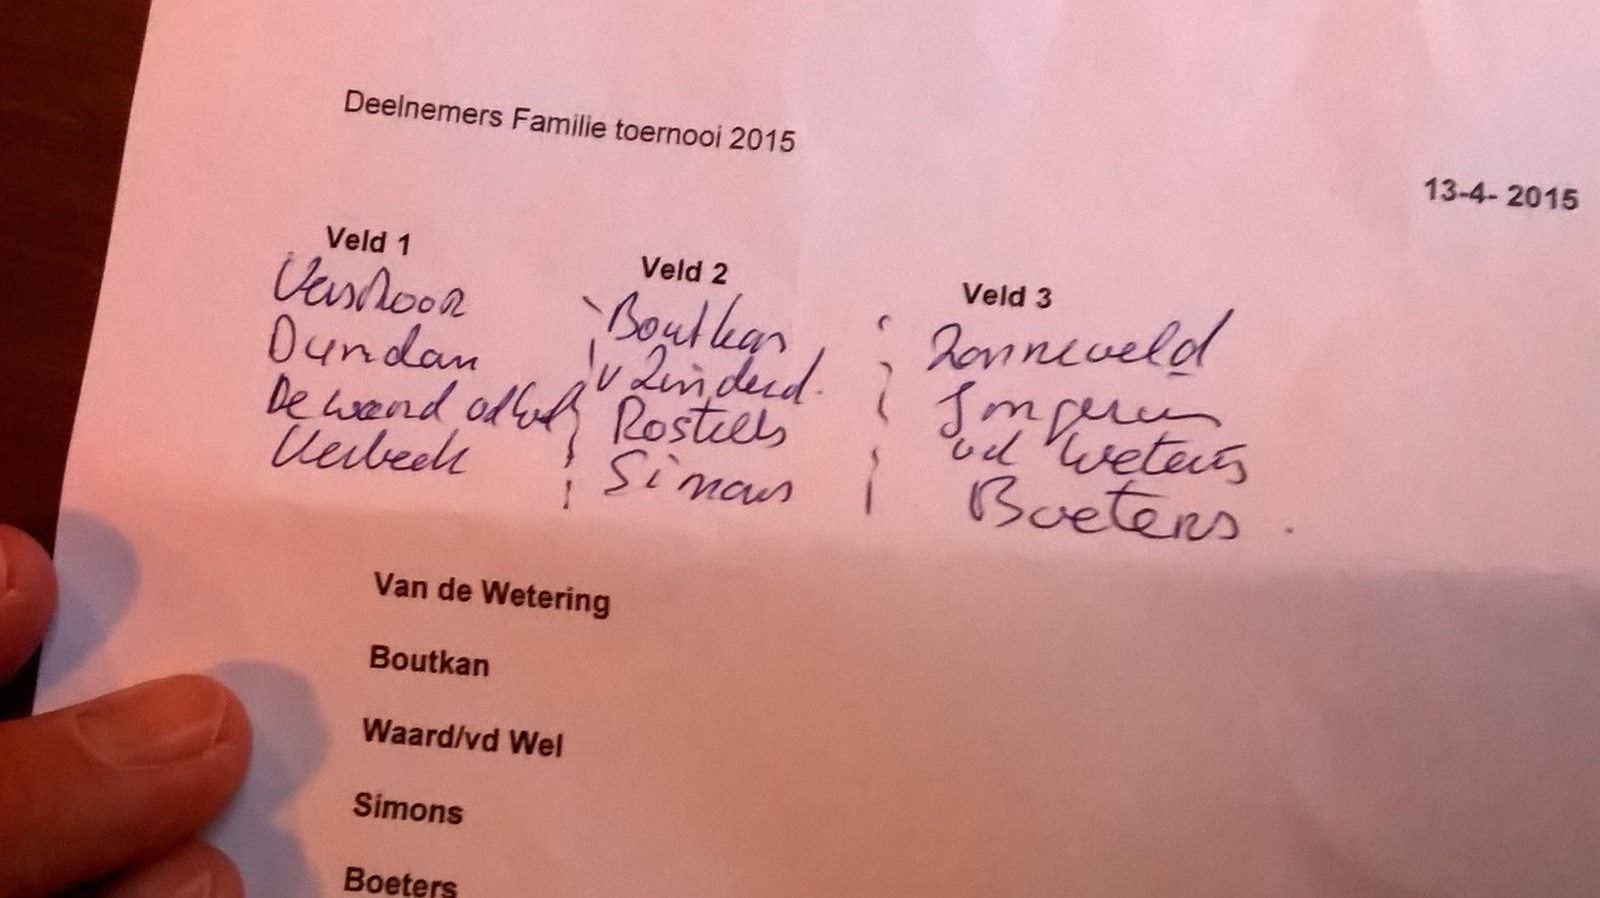 Deelnemers Familie toernooi 2015
13-4- 2015
Veld 1
Verschoor
Dundan
De waard
Verbeek
Veld 2
Boutkan
v
Simons
Veld 3
Zonneveld
vd Wetering
Boeters
Van de Wetering
Boutkan
Waard/vd Wel
Simons
Boeters